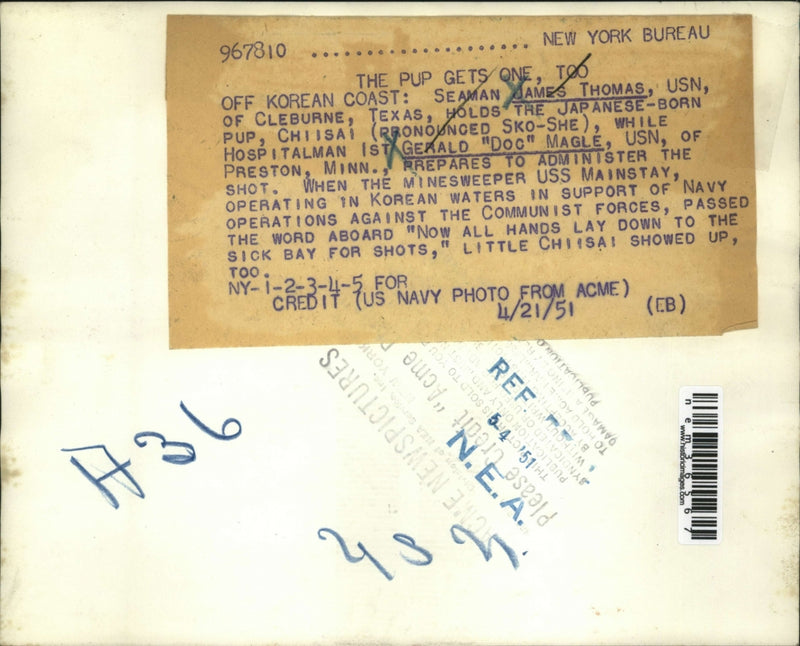 967810 ...................... NEW YORK BUREAU
THE PUP GETS ONE, TOO
OFF KOREAN COAST: SEAMAN JAMES THOMAS, USN,
OF CLEBURNE, TEXAS, HOLDS THE JAPANESE-BORN
PUP, CHIISAI (PRONOUNCED SKO-SHE), WHILE
HOSPITALMAN 1ST GERALD "DOC" MAGLE, USN, OF
PRESTON, MINN., PREPARES TO ADMINISTER THE
SHOT. WHEN THE MINESWEEPER USS MAINSTAY,
OPERATING IN KOREAN WATERS IN SUPPORT OF NAVY
OPERATIONS AGAINST THE COMMUNIST FORCES, PASSED
THE WORD ABOARD "NOW ALL HANDS LAY DOWN TO THE
SICK BAY FOR SHOTS," LITTLE CHIISAI SHOWED UP,
TOO.
NY-1-2-3-4-5 FOR
CREDIT (US NAVY PHOTO FROM ACME)
4/21/51 (EB)
ACME NEWSPICTURES
Please Credit "Acme
REF.
5-4 '51
N.E.A.
A36
nem36567
www.historicimages.com